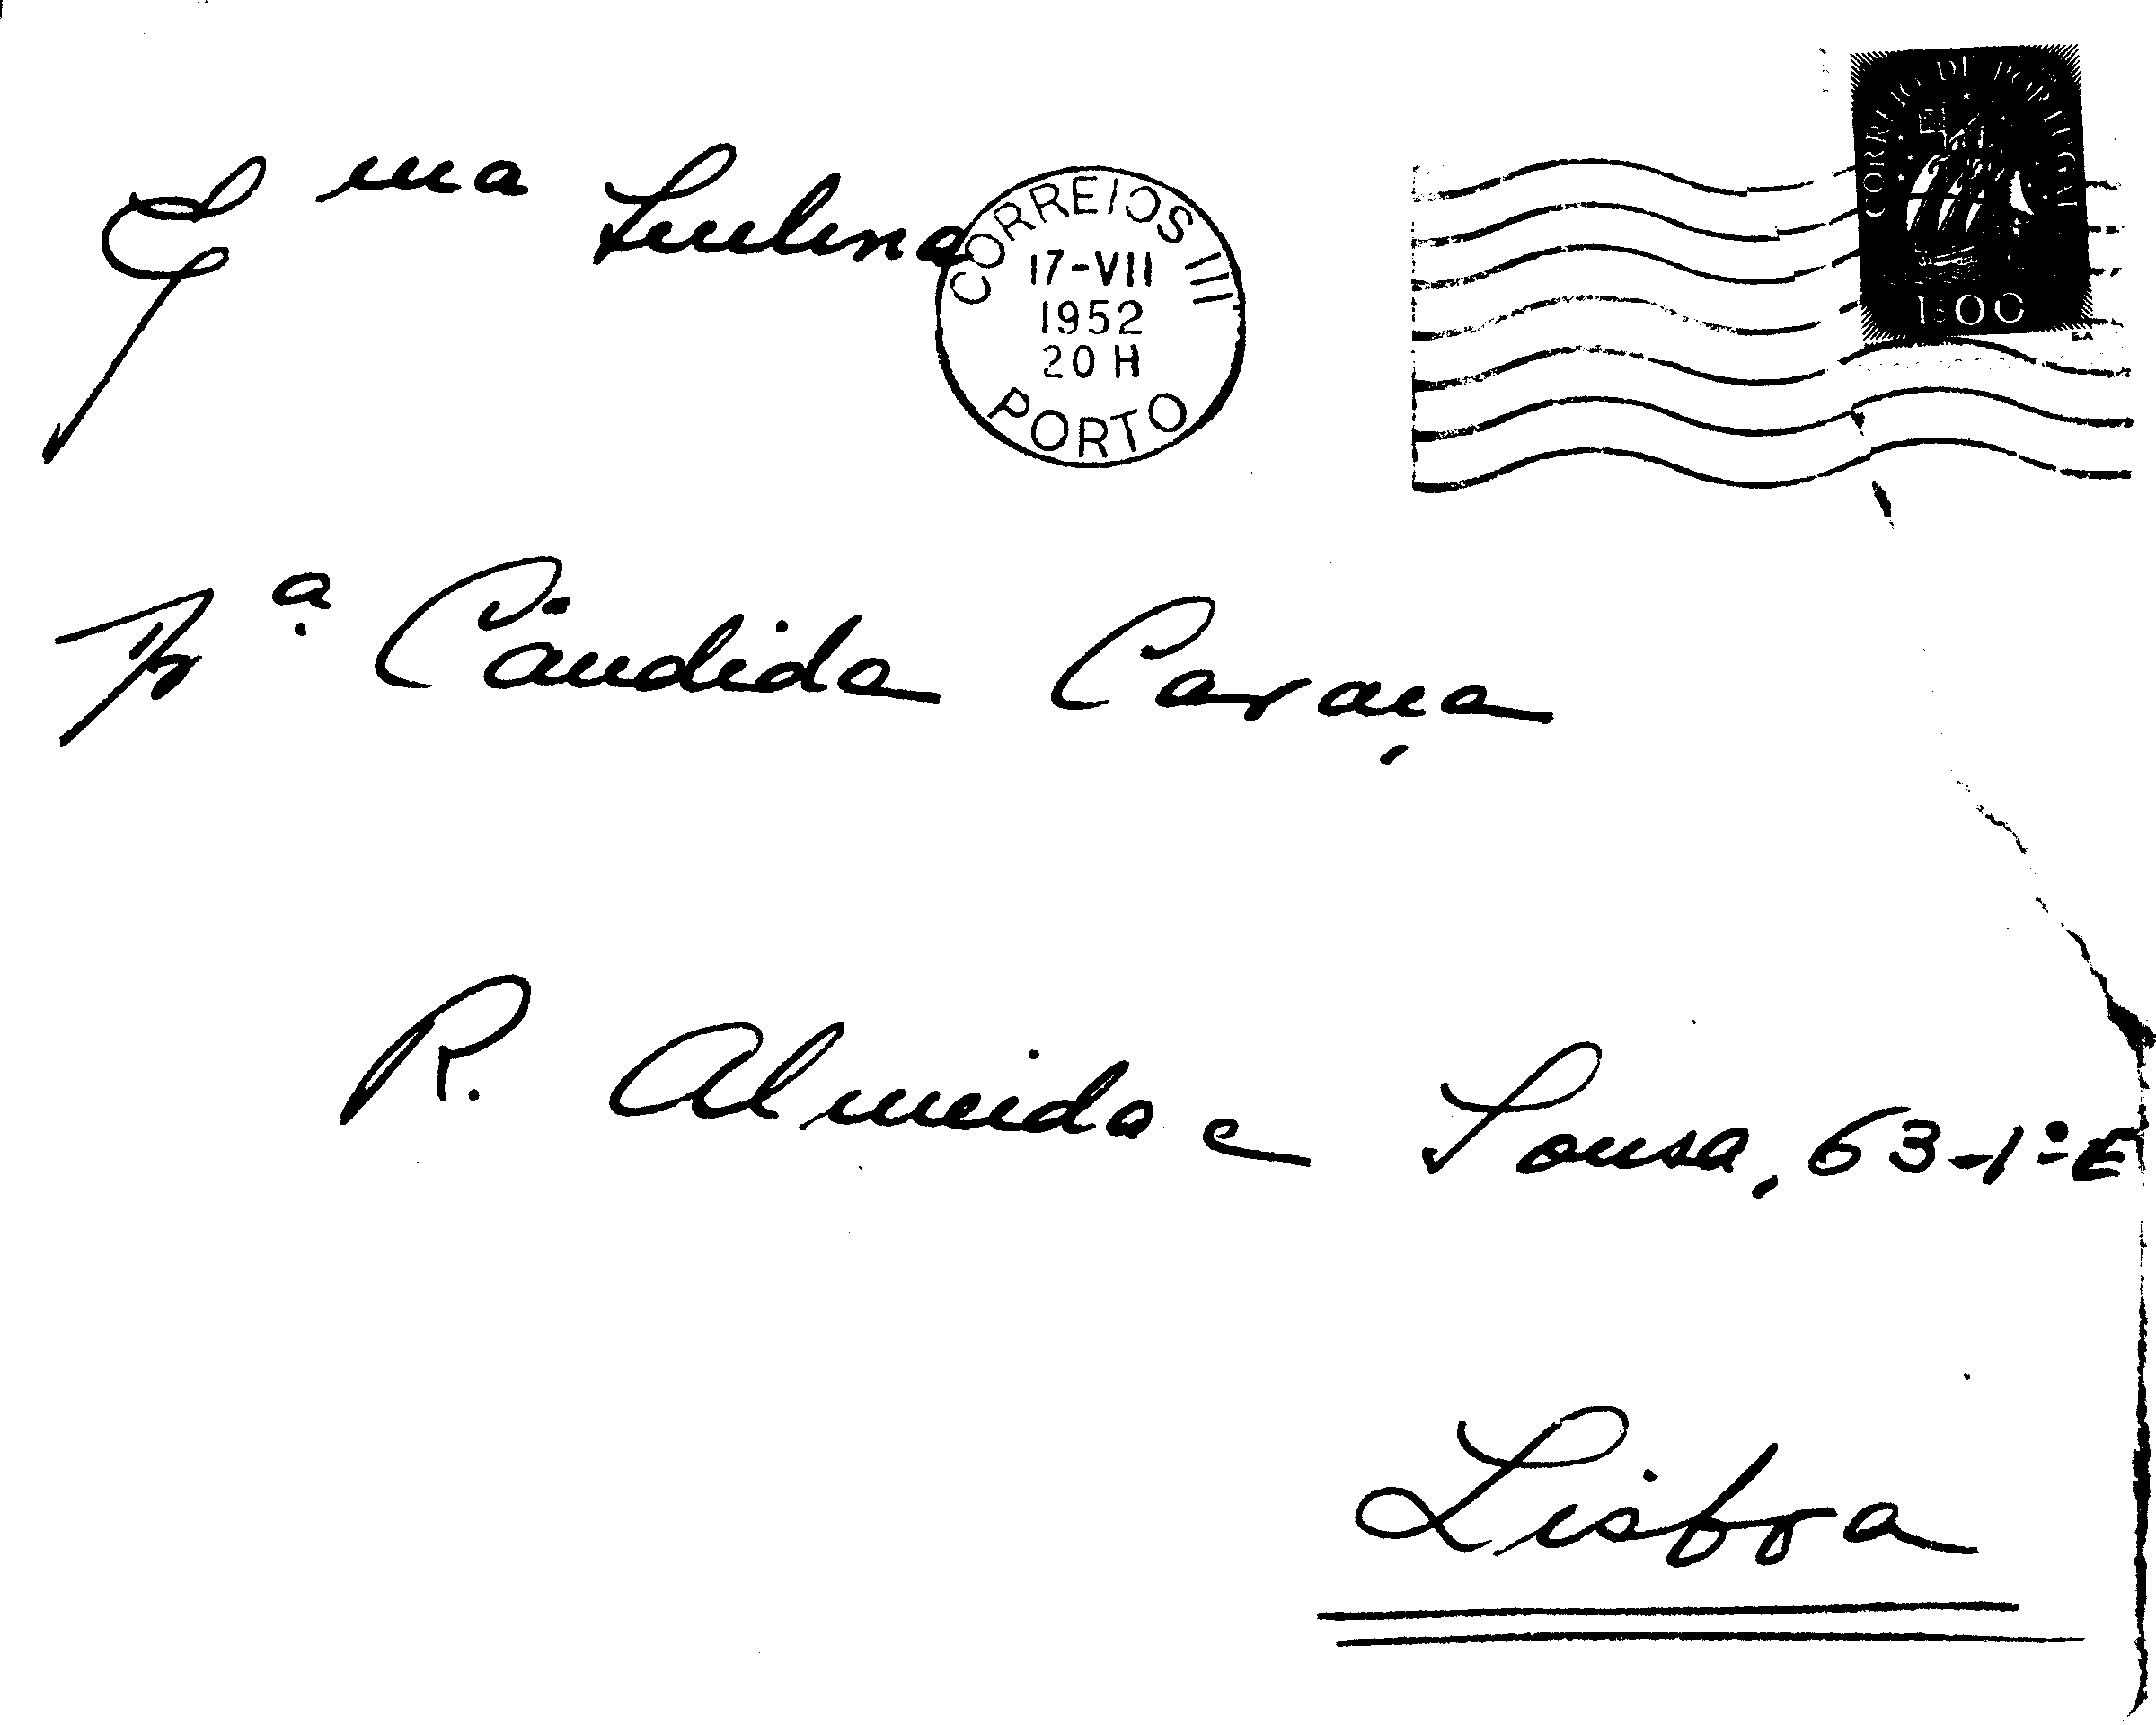 CORREIO DE PORTUGAL
1$00
CORREIOS III
17-VII
1952
20 H
PORTO
Ex.ma Senhora
D.ª Cândida Caraça
R. Almeida e Sousa, 63-1º E
Lisboa